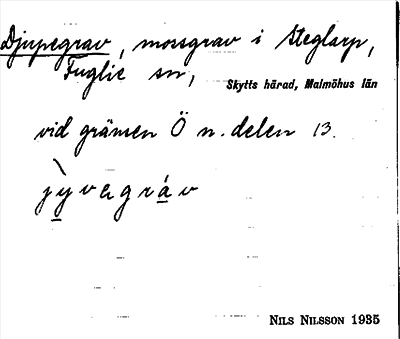 Djupegrav, mossgrav i Steglarp,
Fuglie sn,
Skytts härad, Malmöhus län
vid gränsen Ö n. delen 13.
jỳvegráv
NILS NILSSON 1935